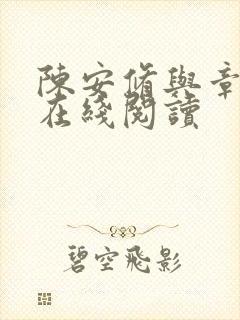 陳安脩與章
在綫閱讀
碧空飛影